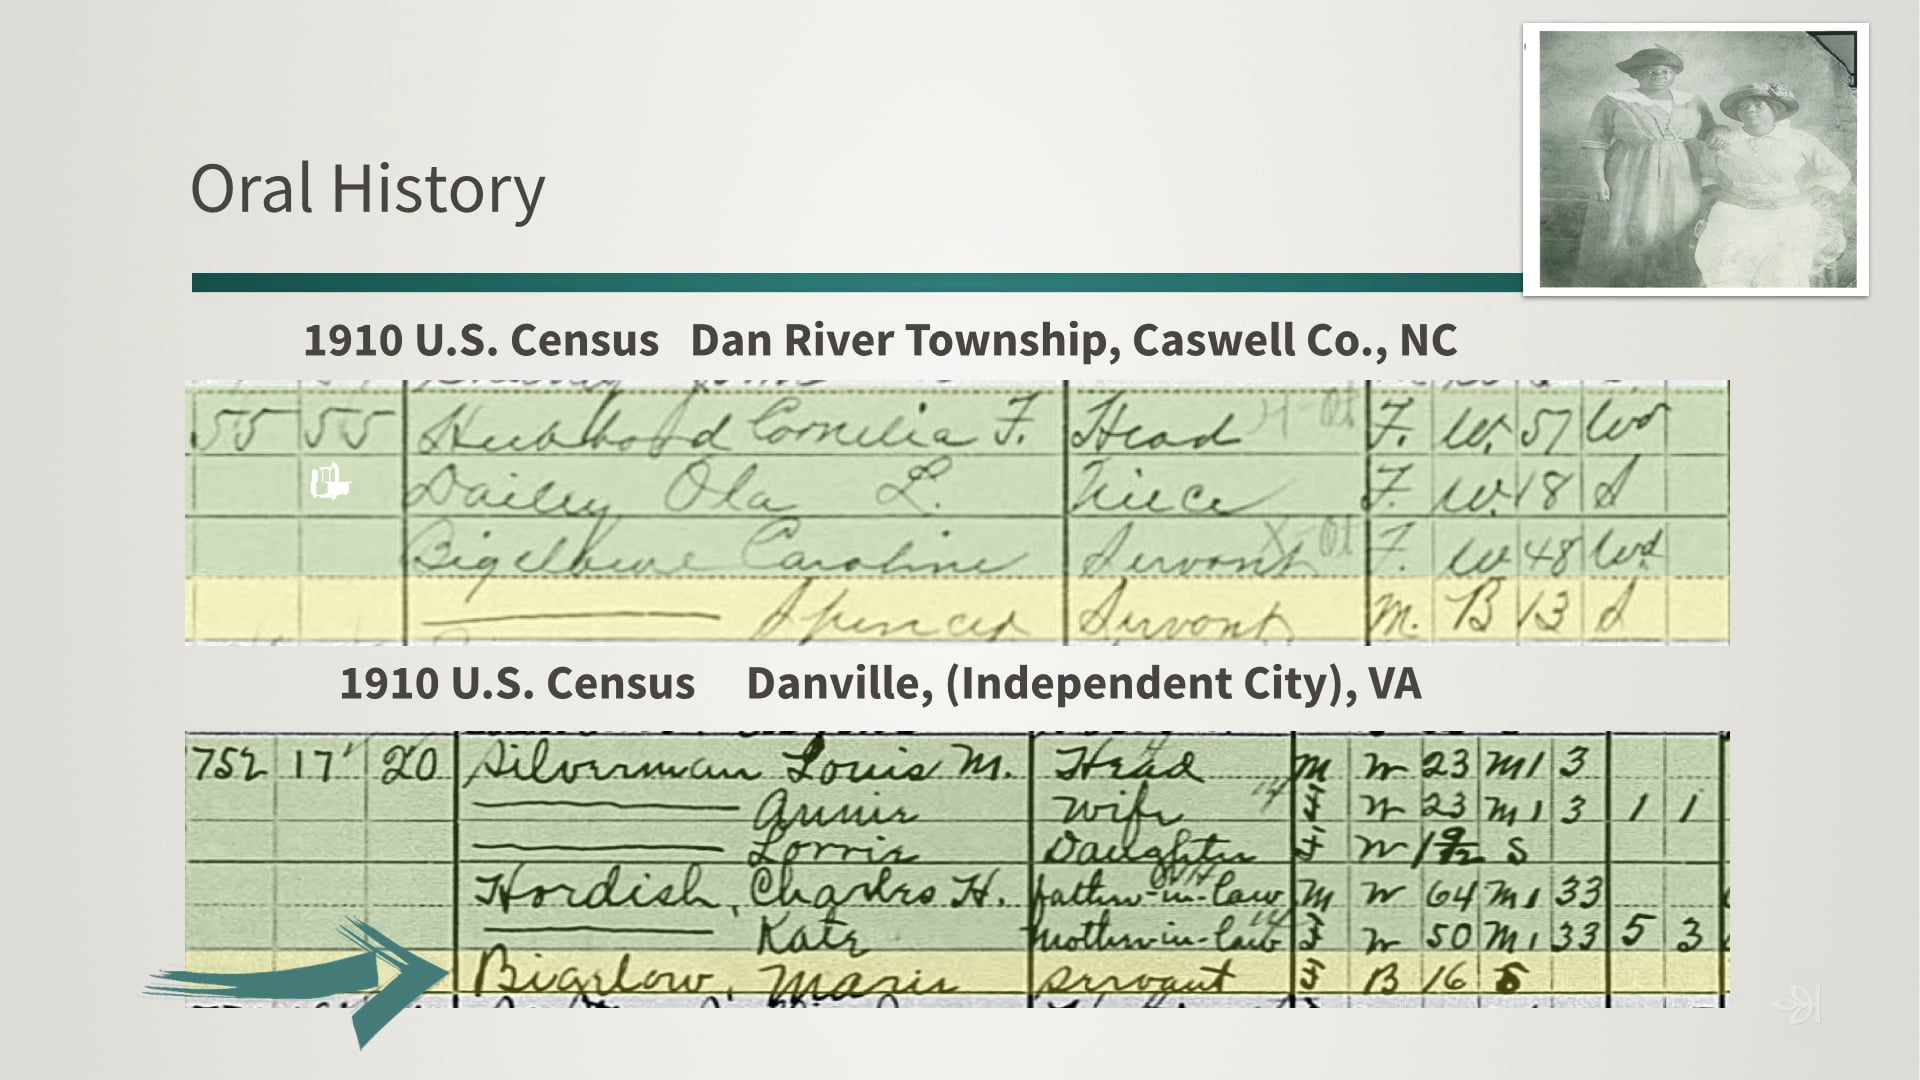 Oral History
1910 U.S. Census Dan River Township, Caswell Co., NC
55 55 Hubbard Cornelia F. Head F. W. 57 Wd
Dailey Ola L. Niece F. W. 18 S
Caroline Servant F. W 48 Wd
Spencer Servant M. B 13 S
1910 U.S. Census Danville, (Independent City), VA
752 17 20 Silverman Louis M. Head M W 23 M1 3
Annie Wife F W 23 M1 3 1 1
Daughter F W S
Hordish, Charles H. father-in-law M W 64 M1 33
Kate Mother-in-law F W 50 M1 33 5 3
Bigelow, Marie Servant F B 16 S